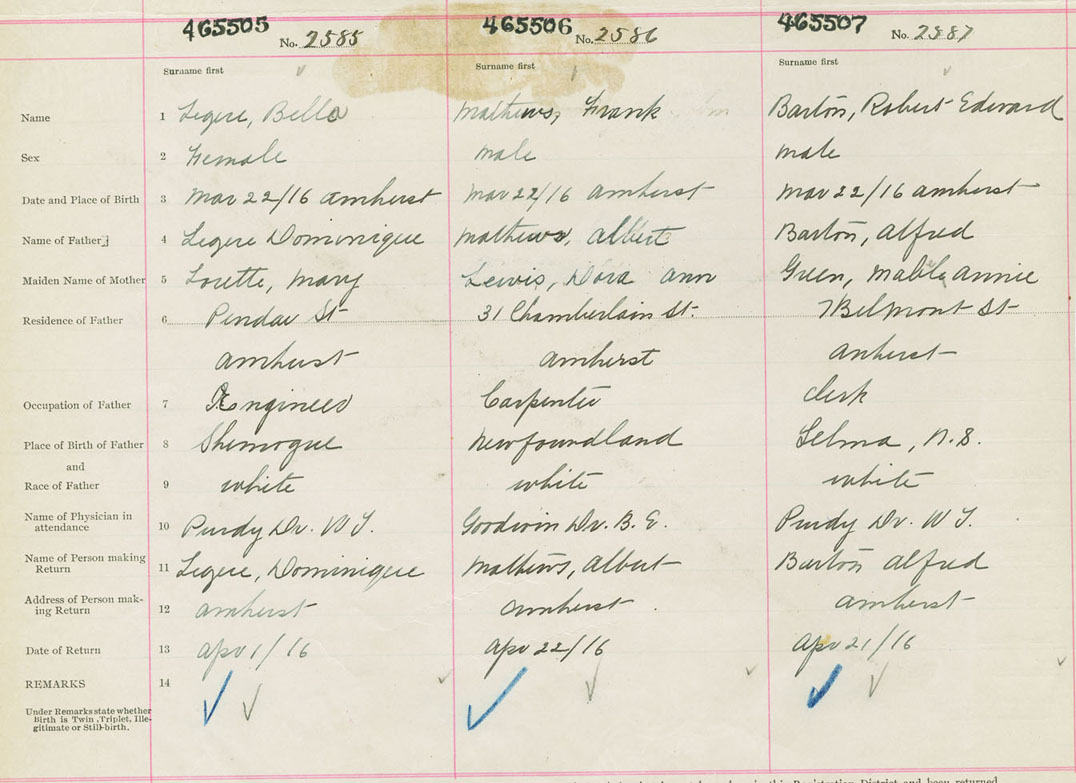 465505 No. 2585 465506 No. 2586 465507 No. 2587
Surname first Surname first Surname first
Name 1 Legere, Bella Mathews, Frank Barton, Robert Edward
Sex 2 Female male male
Date and Place of Birth 3 Mar 22/16 Amherst Mar 22/16 Amherst Mar 22/16 Amherst
Name of Father 4 Legere Dominique Mathews, Albert Barton, Alfred
Maiden Name of Mother 5 Lorette, Mary Lewis, Dora Ann Green, Mable Annie
Residence of Father 6 Pendar St 31 Chamberlain St. 7 Belmont St
Amherst Amherst Amherst
Occupation of Father 7 Engineer Carpenter Clerk
Place of Birth of Father 8 Shemogue Newfoundland Selma, N.S.
and
Race of Father 9 white white white
Name of Physician in
attendance 10 Purdy Dr. W T. Goodwin Dr. B. E. Purdy Dr. W T.
Name of Person making
Return 11 Legere, Dominique Mathews, Albert Barton Alfred
Address of Person mak-
ing Return 12 Amherst Amherst Amherst
Date of Return 13 Apr 1/16 Apr 22/16 Apr 21/16
REMARKS 14
Under Remarks state whether
Birth is Twin, Triplet, Ille-
gitimate or Still-birth.
in this Registration District and been returned